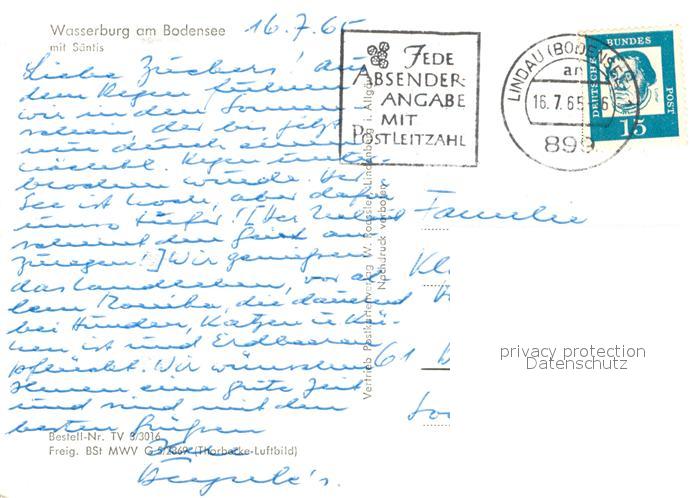 Wasserburg am Bodensee
mit Säntis
16.7.65
Liebe Zieckers! Aus
dem Regen fuhren
wir in den Sommer
der bis jetzt
nur durch einen
nächtl. Regen unter-
brochen wurde. Der
See ist hoch, aber dafür
umso tiefer! [Der Nebel
scheint den Geist an
zuregen!] Wir geniessen
das Landleben, vor al-
lem Monika, die dauernd
bei Hunden, Katzen u. Kü-
hen ist und Erdbeeren
pflückt. Wir wünschen
Ihnen eine gute Zeit
und sind mit den
besten Grüßen
Ihre
Bestell-Nr. TV 8/3016
Freig. BSt MWV G 5/2369 (Thorbecke-Luftbild)
Vertrieb Postkartenverlag W. Roessler, Lindenberg i. Allgäu
Nachdruck verboten
JEDE
ABSENDER-
ANGABE
MIT
POSTLEITZAHL
LINDAU (BODENSEE)
an
16.7.65
899
DEUTSCHE BUNDESPOST
15
Familie
61
privacy protection
Datenschutz